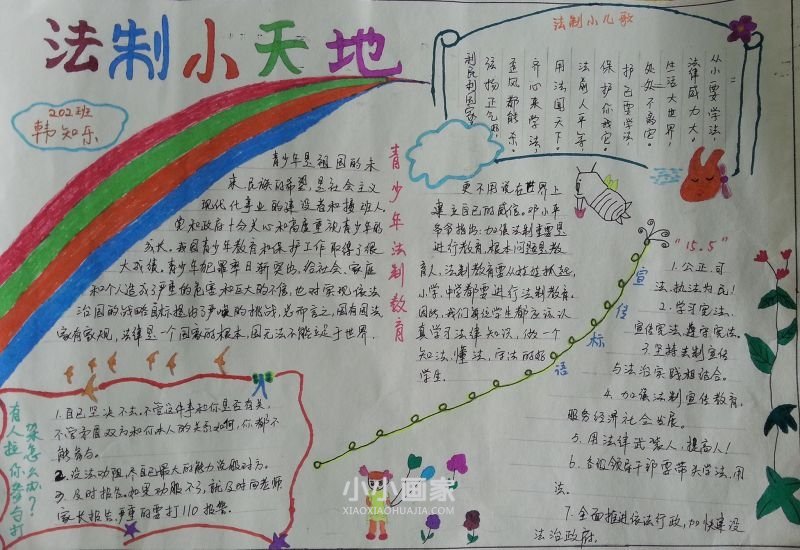 法制小天地
202班
韩知乐
法制小儿歌
从小要学法,
法律威力大。
生活大世界,
处处不离它。
护己要学法,
保护你我它。
法前人平等
用法闯天下。
齐心来学法,
歪风都能杀。
弘扬正气歌,
利民利国家
青少年法制教育
青少年是祖国的未
来,民族的希望,是社会主义
现代化事业的建设者和接班人。
党和政府十分关心和高度重视青少年的
成长。我国青少年教育和保护工作取得了很
大成绩。青少年犯罪率日渐突出,给社会、家庭
和个人造成了严重的危害和巨大的不良,也对实现依法
治国的战略目标提出了严峻的挑战,总而言之,国有国法
家有家规,法律是一个国家的根本,国无法不能立于世界。
更不用说在世界上
建立自己的威信。邓小平
多次指出:加强法制重要是
进行教育,根本问题是教
育人。法制教育要从娃娃抓起,
小学、中学都要进行法制教育。
因此,我们每位学生都应该认
真学习法律知识,做一个
知法、懂法、守法的好
学生。
宣传标语
"15.5"
1.公正、可
法,执法为民!
2.学习宪法、
宣传宪法、遵守宪法。
3.坚持法制宣传
与法治实践相结合。
4.加强法制宣传教育,
服务经济社会发展。
5.用法律武装人,提高人!
6.各级领导干部要带头学法、用
法。
7.全面推进依法行政,加快建设
法治政府。
有人拉你参与打
架怎么办?
1.自己坚决不去,不管这件事和你是否有关,
不管矛盾双方和你本人的关系如何,你都不
能参与。
2.设法劝阻,尽自己最大的能力说服对方。
3.及时报告。如果劝服不了,就及时向老师
家长报告,严重的要打110报警。
小小画家
XIAOXIAOHUAJIA.COM